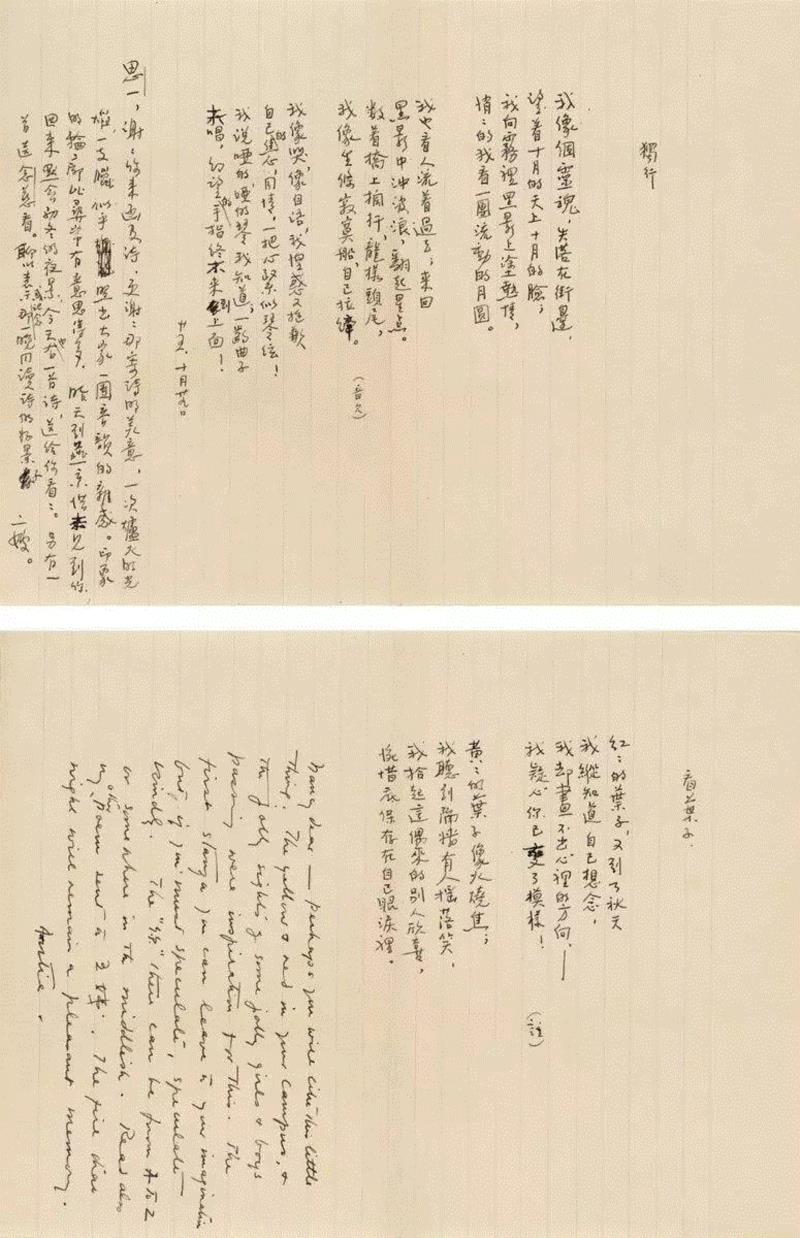 獨行
我像個靈魂,失落在街邊,
望着十月的天上十月的臉;
我向霧裡黑影上塗熱情,
悄悄的我看一團流動的月圓。
我也看人流着過去;來回
黑影中沖波浪,翻起星点。
数着橋上欄杆龍樣頭尾,
我像坐條寂寞船,自己拉縴。
(音欠)
我像哭,像自語,我惶惑又抱歉
自己的焦心,同情,一把心緊似琴絃!
我说唖的,唖的琴我知道,一齣曲子
未唱,幻望的手指終未来到上面!
廿五,十月廿九日
思一,謝謝你来画及诗,更謝謝那寄詩的美意,一次爐火的光
一支臘似乎照出大家一團音韻的雜感。印象
的輪廓比桑中有意思得多。昨天到燕京偕未見到你
回来單会初冬的夜景,今天有一首诗,送给你看看。另有一
首送慈看。聊以表示我紀念那一晚同讀诗的好景
看葉子
红红的葉子,又到了秋天
我縱知道自己想念,
我却畫不出心裡的方向,——
我疑心你已變了模樣!
(註)
黃黃的葉子像火燒焦;
我聽到隔墙有人摇落笑,
我拾起這偶來的別人欣喜,
惋惜底保存在自己眼淚裡。
Dear — perhaps you will like this little
thing. The yellow & red in your campus, &
the jolly sights of some jolly girls & boys
passing were inspiration for this. The
first stanza you can leave to your imagination
but, if you must speculate, speculate
kindly. The "你" there can be from A to Z
or somewhere in the middlish. Read also
my other poem sent to 王. The fire-
night will remain a pleasant memory.